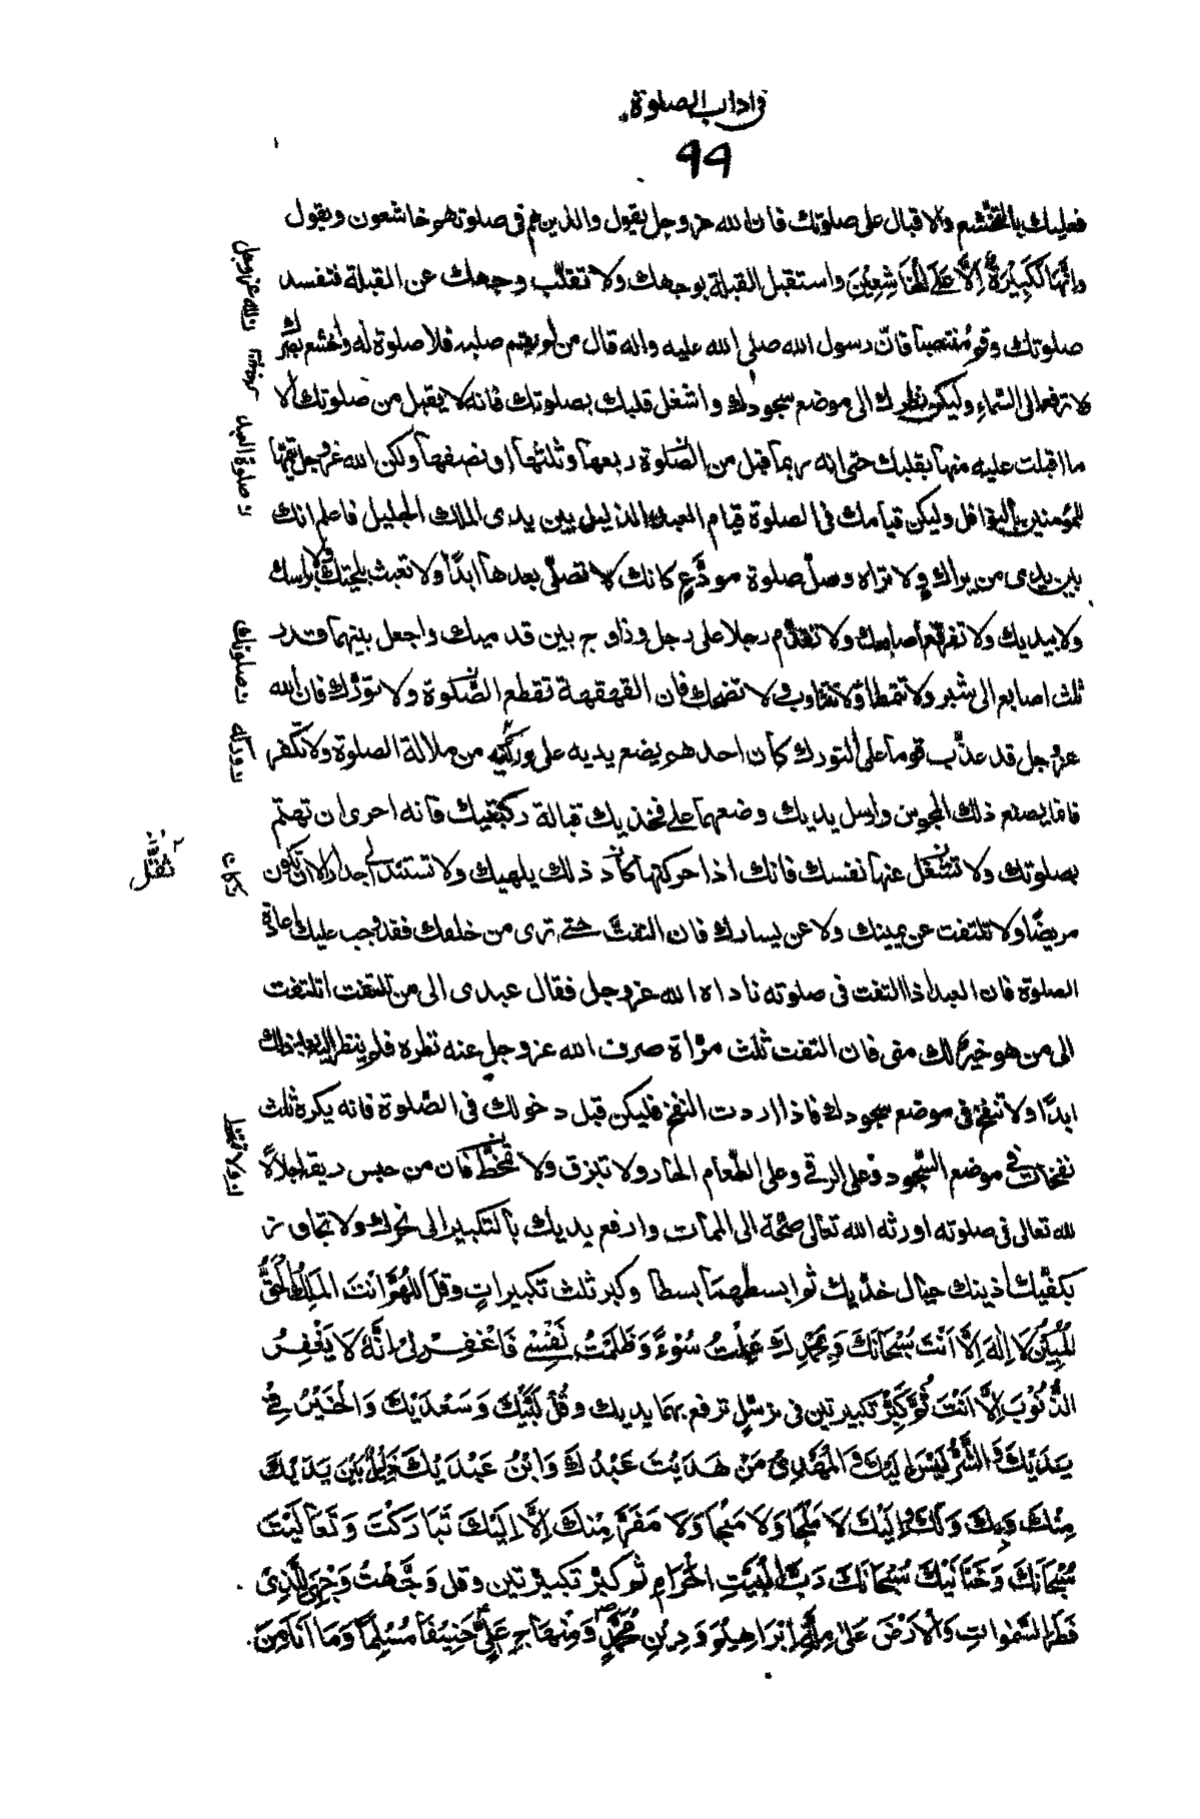 في اداب الصلوة
٩٩
فعليك بالتخشع والاقبال على صلوتك فان الله عز وجل يقول والذين هم في صلوتهم خاشعون ويقول
وَاِنَّهَا لَكَبِيْرَةٌ اِلَّا عَلَى الْخَاشِعِيْنَ واستقبل القبلة بوجهك ولا تقلب وجهك عن القبلة فتفسد
صلوتك وقم مُنتصبا فانّ رسول الله صلى الله عليه واله قال من لم يقم صلبه فلا صلوة له واخشع بصرك
ولا ترفعه الى السَّماءِ وليكن نظرك الى موضع سجودك واشغل قلبك بصلوتك فانه لا يقبل من صلوتك الا
ما اقبلت عليه منها بقلبك حتى انه ربما قبل من الصَّلوة ربعها وثلثها او نصفها ولكن الله عز وجل يتمها
للمؤمنين بالنوافل وليكن قيامك في الصلوة قيام العبد الذليل بين يدى الملك الجليل فاعلم انك
بين يدى من يراك ولا تراه وصلّ صلوة مودَّعٍ كانك لا تصلّى بعدها ابدًا ولا تعبث بلحيتك ولا براسك
ولا بيديك ولا تفرقع اصابعك ولا تقدّم رجلا على رجل وزاوج بين قدميك واجعل بينهما قدر
ثلث اصابع الى شبر ولا تتمطا ولا تتثاوب ولا تضحك فان القهقهة تقطع الصَّلوة ولا تورّك فان الله
عز وجل قد عذّب قوما على التورك كان احدهم يضع يديه على وركيه من ملالة الصلوة ولا تكفر
فانما يصنع ذلك المجوس وارسل يديك وضعهما على فخذيك قبالة ركبتيك فانه احرى ان تهتم
بصلوتك ولا تشتغل عنها نفسك فانك اذا حركتها كان ذلك يلهيك ولا تستند الى جدار الا ان تكون
مريضًا ولا تلتفت عن يمينك ولا عن يسارك فان التفتَّ حتى ترى من خلفك فقد وجب عليك اعادة
الصلوة فان العبد اذا التفت في صلوته ناداه الله عز وجل فقال عبدى الى من تلتفت اتلتفت
الى من هو خير لك منى فان التفت ثلث مرّاة صرف الله عز وجل عنه نظره فلم ينظر اليه بعد ذلك
ابدًا ولا تنفخ في موضع سجودك فاذا اردت النفخ فليكن قبل دخولك في الصَّلوة فانه يكره ثلث
نفخات في موضع السّجود وعلى الرقى وعلى الطّعام الحار ولا تبزق ولا تمخّط فان من حبس ريقه اجلالًا
لله تعالى في صلوته اورثه الله تعالى صحّة الى الممات وارفع يديك بالتكبير الى نحرك ولا تجاوز
بكفّيك اذنيك حيال خدّيك ثم ابسطهما بسطا وكبر ثلث تكبيراتٍ وقل اَللّٰهُمَّ اَنْتَ الْمَلِكُ الْحَقُّ
الْمُبِيْنُ لَا اِلٰهَ اِلَّا اَنْتَ سُبْحَانَكَ وَبِحَمْدِكَ عَمِلْتُ سُوْءً وَظَلَمْتُ نَفْسِيْ فَاغْفِرْ لِىْ اِنَّهُ لَا يَغْفِرُ
الذُّنُوْبَ اِلَّا اَنْتَ ثُمَّ كَبِّرْ تكبيرتين في ترسّلٍ ترفع بهما يديك وقُلْ لَبَّيْكَ وَسَعْدَيْكَ وَالْخَيْرُ فِيْ
يَدَيْكَ وَالشَّرُّ لَيْسَ اِلَيْكَ وَالْمَهْدِىُّ مَنْ هَدَيْتَ عَبْدُكَ وَابْنُ عَبْدَيْكَ ذَلِيْلٌ بَيْنَ يَدَيْكَ
مِنْكَ وَبِكَ وَلَكَ وَاِلَيْكَ لَا مَلْجَا وَلَا مَنْجَا وَلَا مَفَرَّ مِنْكَ اِلَّا اِلَيْكَ تَبَارَكْتَ وَتَعَالَيْتَ
سُبْحَانَكَ وَحَنَانَيْكَ سُبْحَانَكَ رَبَّ الْبَيْتِ الْحَرَامِ ثم كبر تكبيرتين وقل وَجَّهْتُ وَجْهِىَ لِلَّذِىْ
فَطَرَ السَّمٰوَاتِ وَالْاَرْضَ عَلٰى مِلَّةِ اِبْرَاهِيْمَ وَدِيْنِ مُحَمَّدٍ وَمِنْهَاجِ عَلِىٍّ حَنِيْفًا مُسْلِمًا وَمَا اَنَا مِنَ